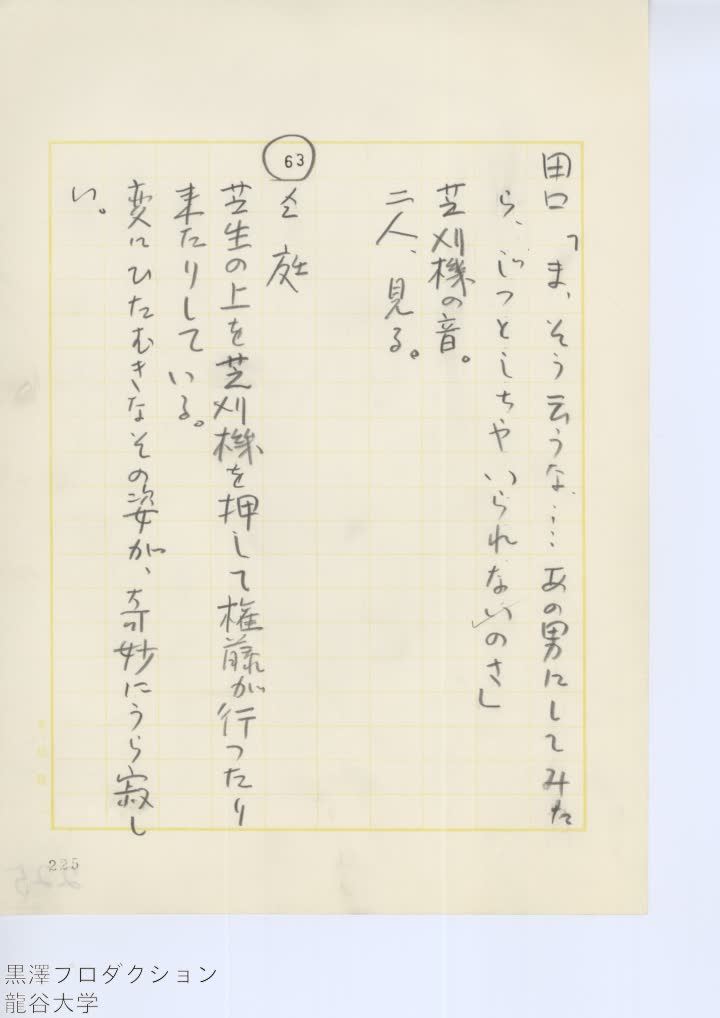 田口「ま、そう云うな、…あの男にしてみた
ら、じっとしちゃいられないのさ」
芝刈機の音。
二人、見る。
63
仝 庭
芝生の上を芝刈機を押して権藤が行ったり
来たりしている。
変にひたむきなその姿が、奇妙にうら寂し
い。
225
黒澤プロダクション
龍谷大学